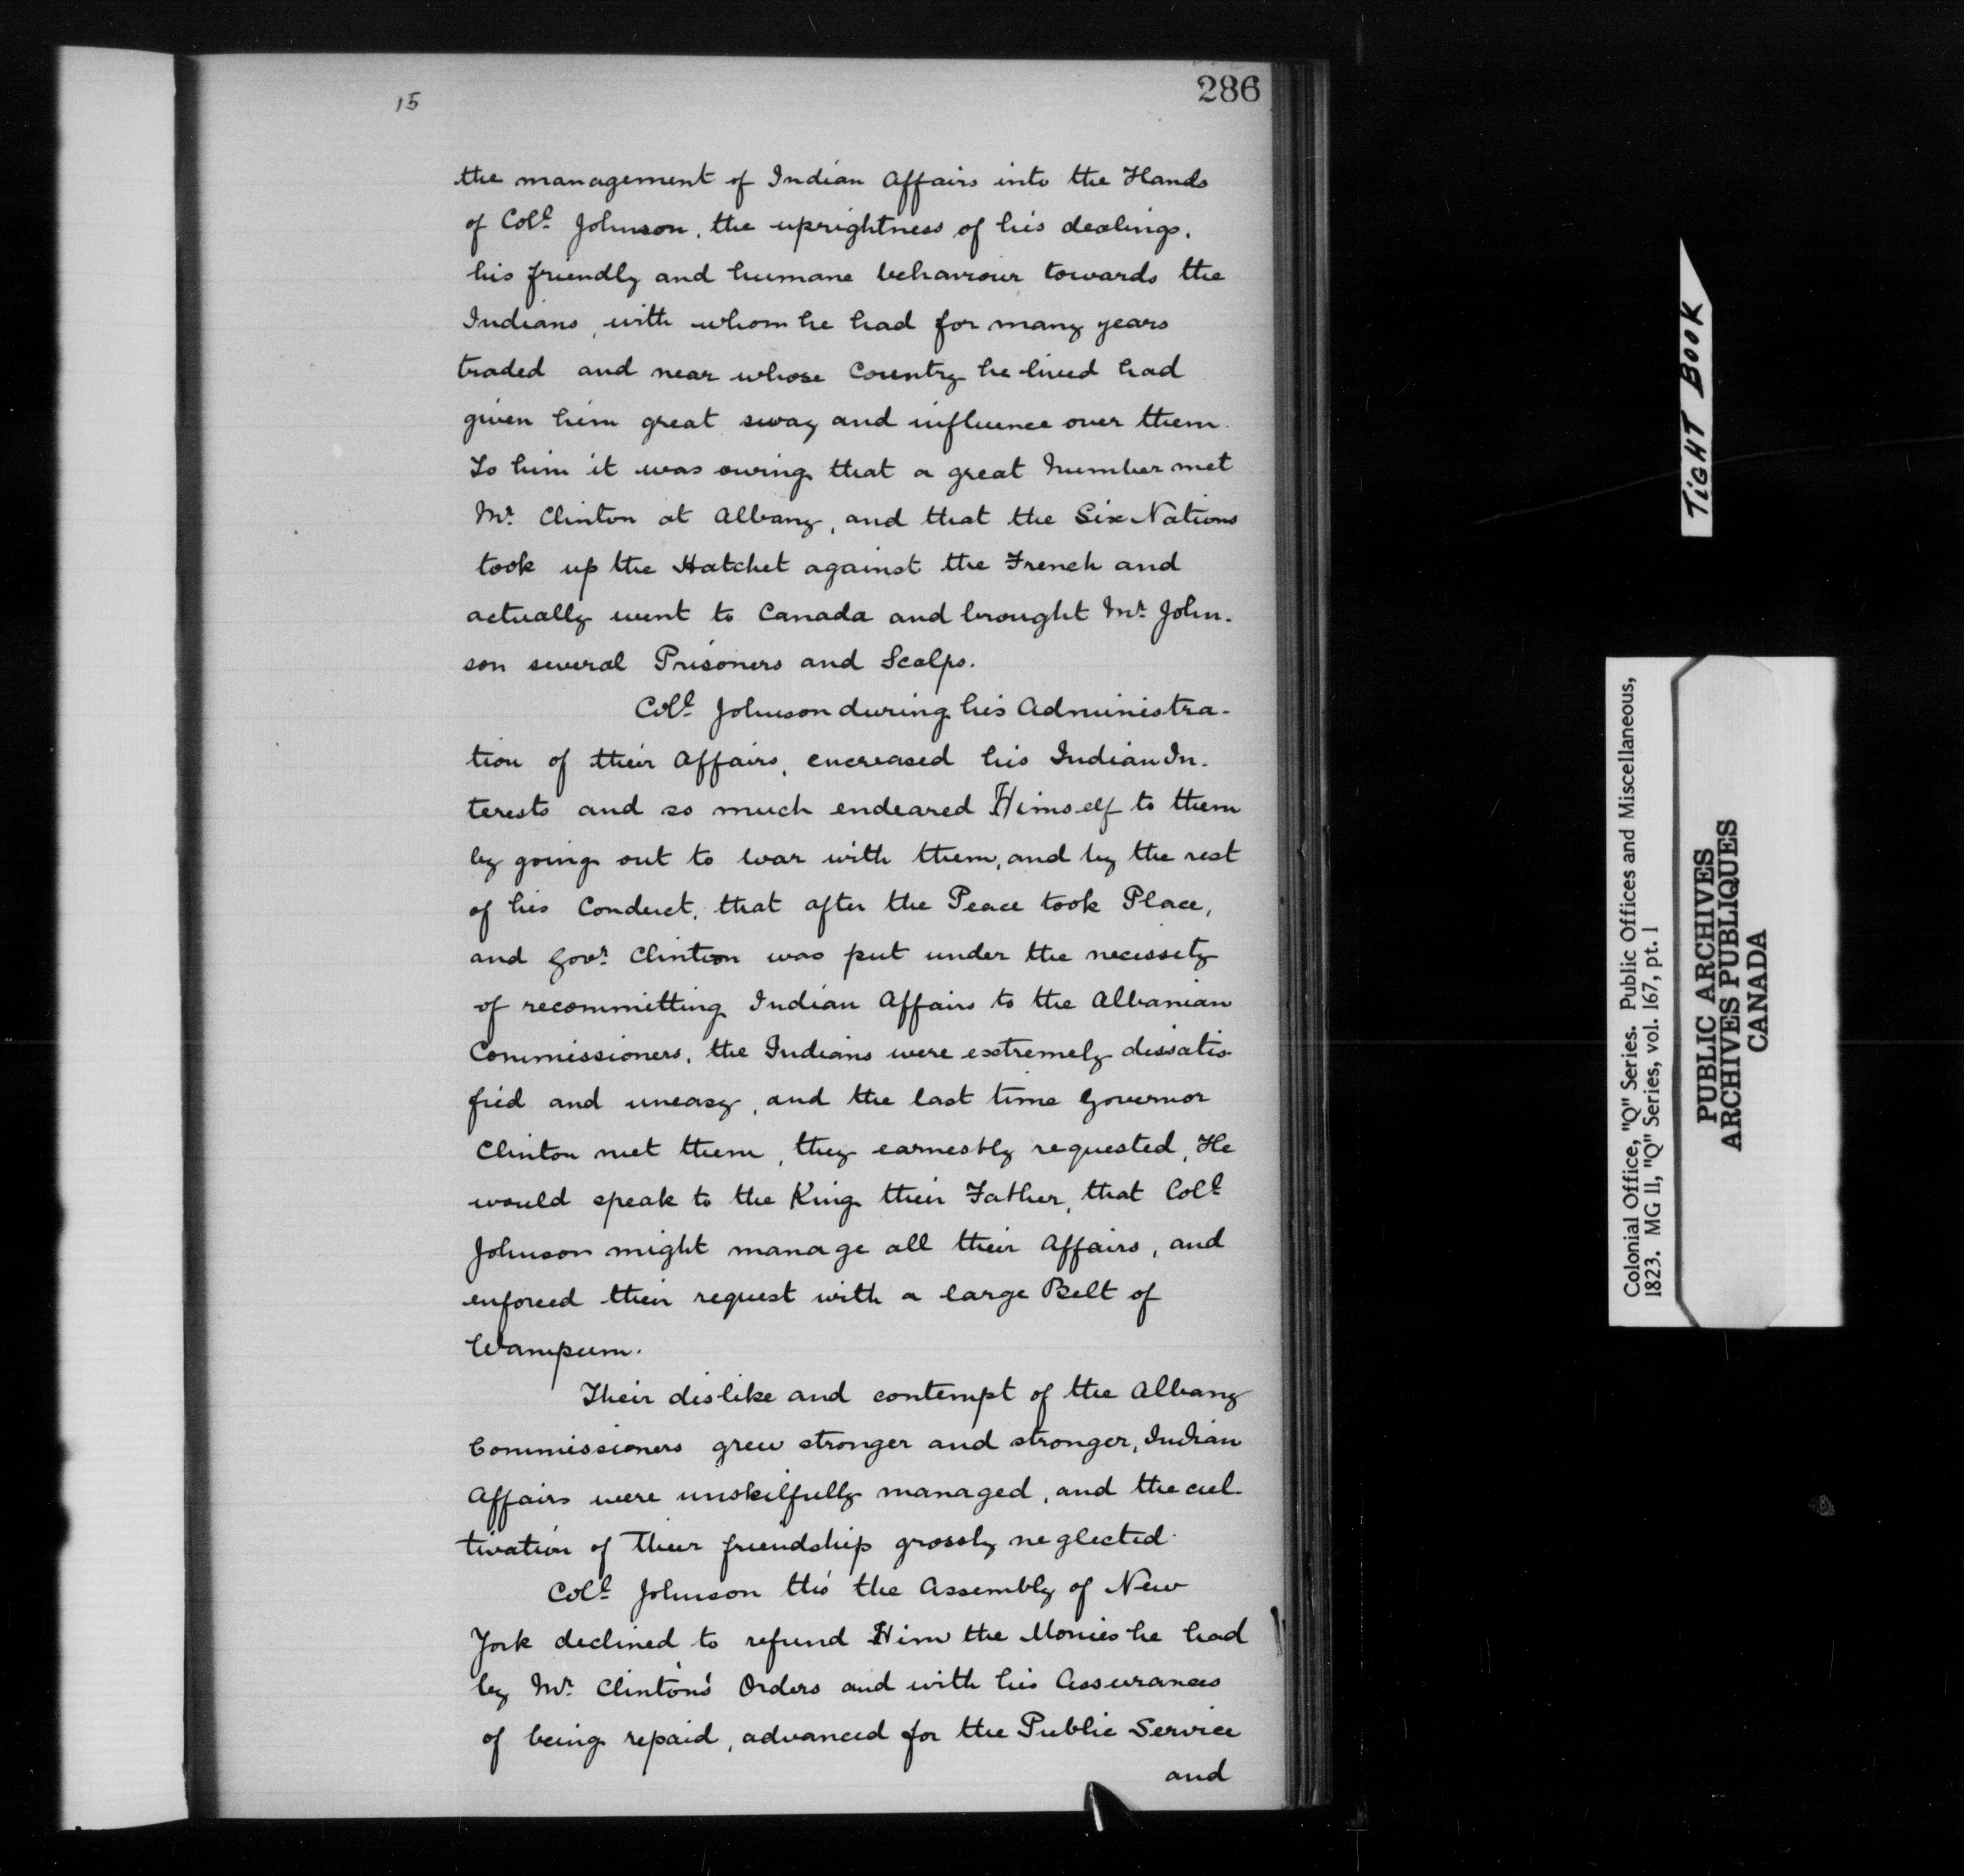 15
286
the management of Indian Affairs into the Hands
of Coll. Johnson, the uprightness of his dealings,
his friendly and humane behaviour towards the
Indians, with whom he had for many years
traded and near whose Country he lived had
given him great sway and influence over them.
To him it was owing that a great Number met
Mr. Clinton at Albany, and that the Six Nations
took up the Hatchet against the French and
actually went to Canada and brought Mr. John-
son several Prisoners and Scalps.
Coll. Johnson during his Administra-
tion of their Affairs, encreased his Indian In-
terests and so much endeared Himself to them
by going out to War with them, and by the rest
of his Conduct, that after the Peace took Place,
and Govr. Clinton was put under the necessity
of recommitting Indian Affairs to the Albanian
Commissioners, the Indians were extremely dissatis-
fied and uneasy, and the last time Governor
Clinton met them, they earnestly requested, He
would speak to the King their Father, that Coll.
Johnson might manage all their Affairs, and
enforced their request with a large Belt of
Wampum.
Their dislike and contempt of the Albany
Commissioners grew stronger and stronger, Indian
Affairs were unskilfully managed, and the cul-
tivation of their friendship grossly neglected.
Coll. Johnson tho' the Assembly of New
York declined to refund Him the Monies he had
by Mr. Clinton's Orders and with his Assurances
of being repaid, advanced for the Public Service
and
TIGHT BOOK
Colonial Office, "Q" Series. Public Offices and Miscellaneous,
1823. MG 11, "Q" Series, vol. 167, pt. 1
PUBLIC ARCHIVES
ARCHIVES PUBLIQUES
CANADA